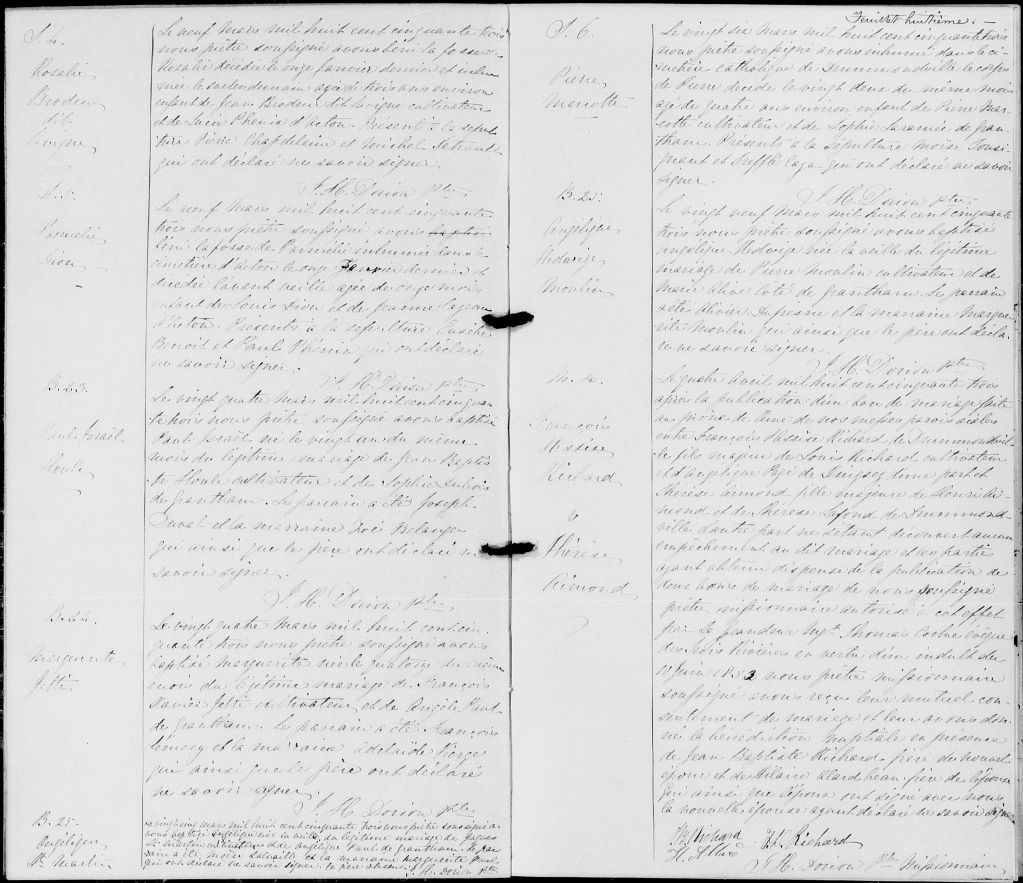 S. 4.
Rosalie
Brodeur
dit
Lavigne
Le neuf Mars mil huit cent cinquante trois
nous prêtre soussigné avons béni la fosse de
Rosalie décédée le onze Janvier dernier et inhu
mée le surlendemain agée de trois ans environ
enfant de Jean Brodeur dit Lavigne cultivateur
et de Lucie Phenix d'Acton. Présents à la sepul
ture Pierre Chapdelaine et Michel Tetrault
qui ont déclaré ne savoir signer.
J. H. Dorion ptre
S. 5.
Parmelie
Dion
Le neuf Mars mil huit cent cinquante
trois nous prêtre soussigné avons
béni la fosse de Parmélie inhumée dans le
cimetière d'Acton le onze Janvier dernier et
décédée l'avant veille agée de onze mois
enfant de Louis Dion et de
d'Acton. Présents à la sepulture Eusèbe
Benoit et Paul Phénix qui ont déclaré
ne savoir signer.
J. H. Dorion ptre
B. 23.
Paul Israël
Houle
Le vingt quatre Mars mil huit cent cinquan
te trois nous prêtre soussigné avons baptisé
Paul Israël né le vingt un du même
mois du légitime mariage de Jean Baptis
te Houle cultivateur et de Sophie Dubois
de Grantham. Le parrain a été Joseph
Duval et la marraine Zoé Belanger
qui ainsi que le père ont déclaré ne
savoir signer.
J. H. Dorion ptre
B. 24.
Marguerite
Jette
Le vingt quatre Mars mil huit cent cin
quante trois nous prêtre soussigné avons
baptisé Marguerite née le quatorze du même
mois du légitime mariage de François
Xavier Jette cultivateur et de Angèle Paul
de Grantham. Le parrain a été François
Lemery et la marraine Adelaide
qui ainsi que le père ont déclaré
ne savoir signer.
J. H. Dorion ptre
B. 25.
Angélique
St Martin
Le vingt cinq Mars mil huit cent cinquante trois nous prêtre soussigné a
vons baptisé Angélique née la veille du légitime mariage de Jacques
St Martin cultivateur et de Angélique Paul de Grantham. Le par
rain a été Moise Salvaille et la marraine Marguerite Paul
qui ont déclaré ne savoir signer. Le père absent. J. H. Dorion Ptre
Feuillet huitième. —
S. 6.
Pierre
Marcotte
Le vingt six Mars mil huit cent cinquante trois
nous prêtre soussigné avons inhumé dans le ci
metière catholique de Drummondville le corps
de Pierre décédé le vingt deux du même mois
agé de quatre ans environ, enfant de Pierre Mar
cotte cultivateur et de Sophie Laramée de Gran
tham. Présents à la sépulture Moise Tousi
gnant et Treffle qui ont déclaré ne savoir
signer.
J. H. Dorion ptre
B. 25.
Angélique
Hedwige
Moulin
Le vingt neuf Mars mil huit cent cinquante
trois nous prêtre soussigné avons baptisé
Angélique Hedwige née la veille du légitime
mariage de Pierre Moulin cultivateur et de
Marie Olive Coté de Grantham. Le parrain
a été Olivier Dufresne et la marraine Margue
rite Moulin qui ainsi que le père ont décla
ré ne savoir signer.
J. H. Dorion ptre
M. 4.
François
Assise
Richard
&
Thérèse
Aimond
Le quatre Avril mil huit cent cinquante trois
après la publication d'un ban de mariage faite
au prône de l'une de nos messes paroissiales
entre François d'Assise Richard de Drummondvil
le fils majeur de Louis Richard cultivateur
et d'Angelique Pagé de Kingsey d'une part et
Thérèse Aimond fille majeure de Henri Ai
mond et de Thérèse Lafond de Drummond
ville d'autre part ne s'étant découvert aucun
empêchement au dit mariage et les parties
ayant obtenu dispense de la publication de
deux bans de mariage de nous soussigné
prêtre missionnaire autorisé à cet effet
par Sa Grandeur Mgr Thomas Cooke évêque
des Trois Rivières en vertu d'un indult du
10 Juin 1852 nous prêtre missionnaire
soussigné avons reçu leur mutuel con
sentement de mariage et leur avons don
né la bénédiction nuptiale en présence
de Jean Baptiste Richard frère du nouvel
époux et de Hilaire Alard beau-père de l'épouse
qui ainsi que l'époux ont signé avec nous
la nouvelle épouse ayant déclaré ne savoir signer.
JB Richard F. A. Richard
H. Allard
J. H. Dorion Ptre Missionnaire